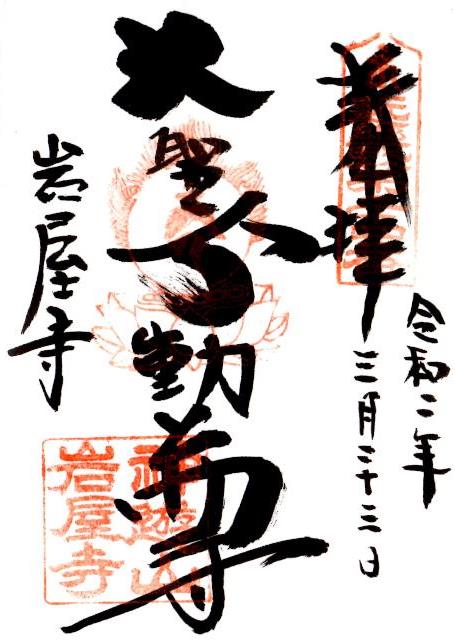 奉拝
令和二年
三月二十三日
大聖不動尊
岩屋寺
神遊山
岩屋寺